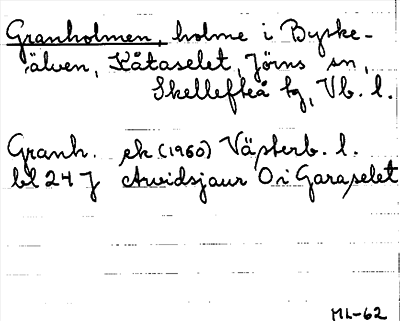 Granholmen, holme i Byske-
älven, Kåtaselet, Jörns sn,
Skellefteå tg, Vb. l.
Granh. ek (1960) Västerb. l.
bl 24 J Arvidsjaur O i Garaselet
ML-62